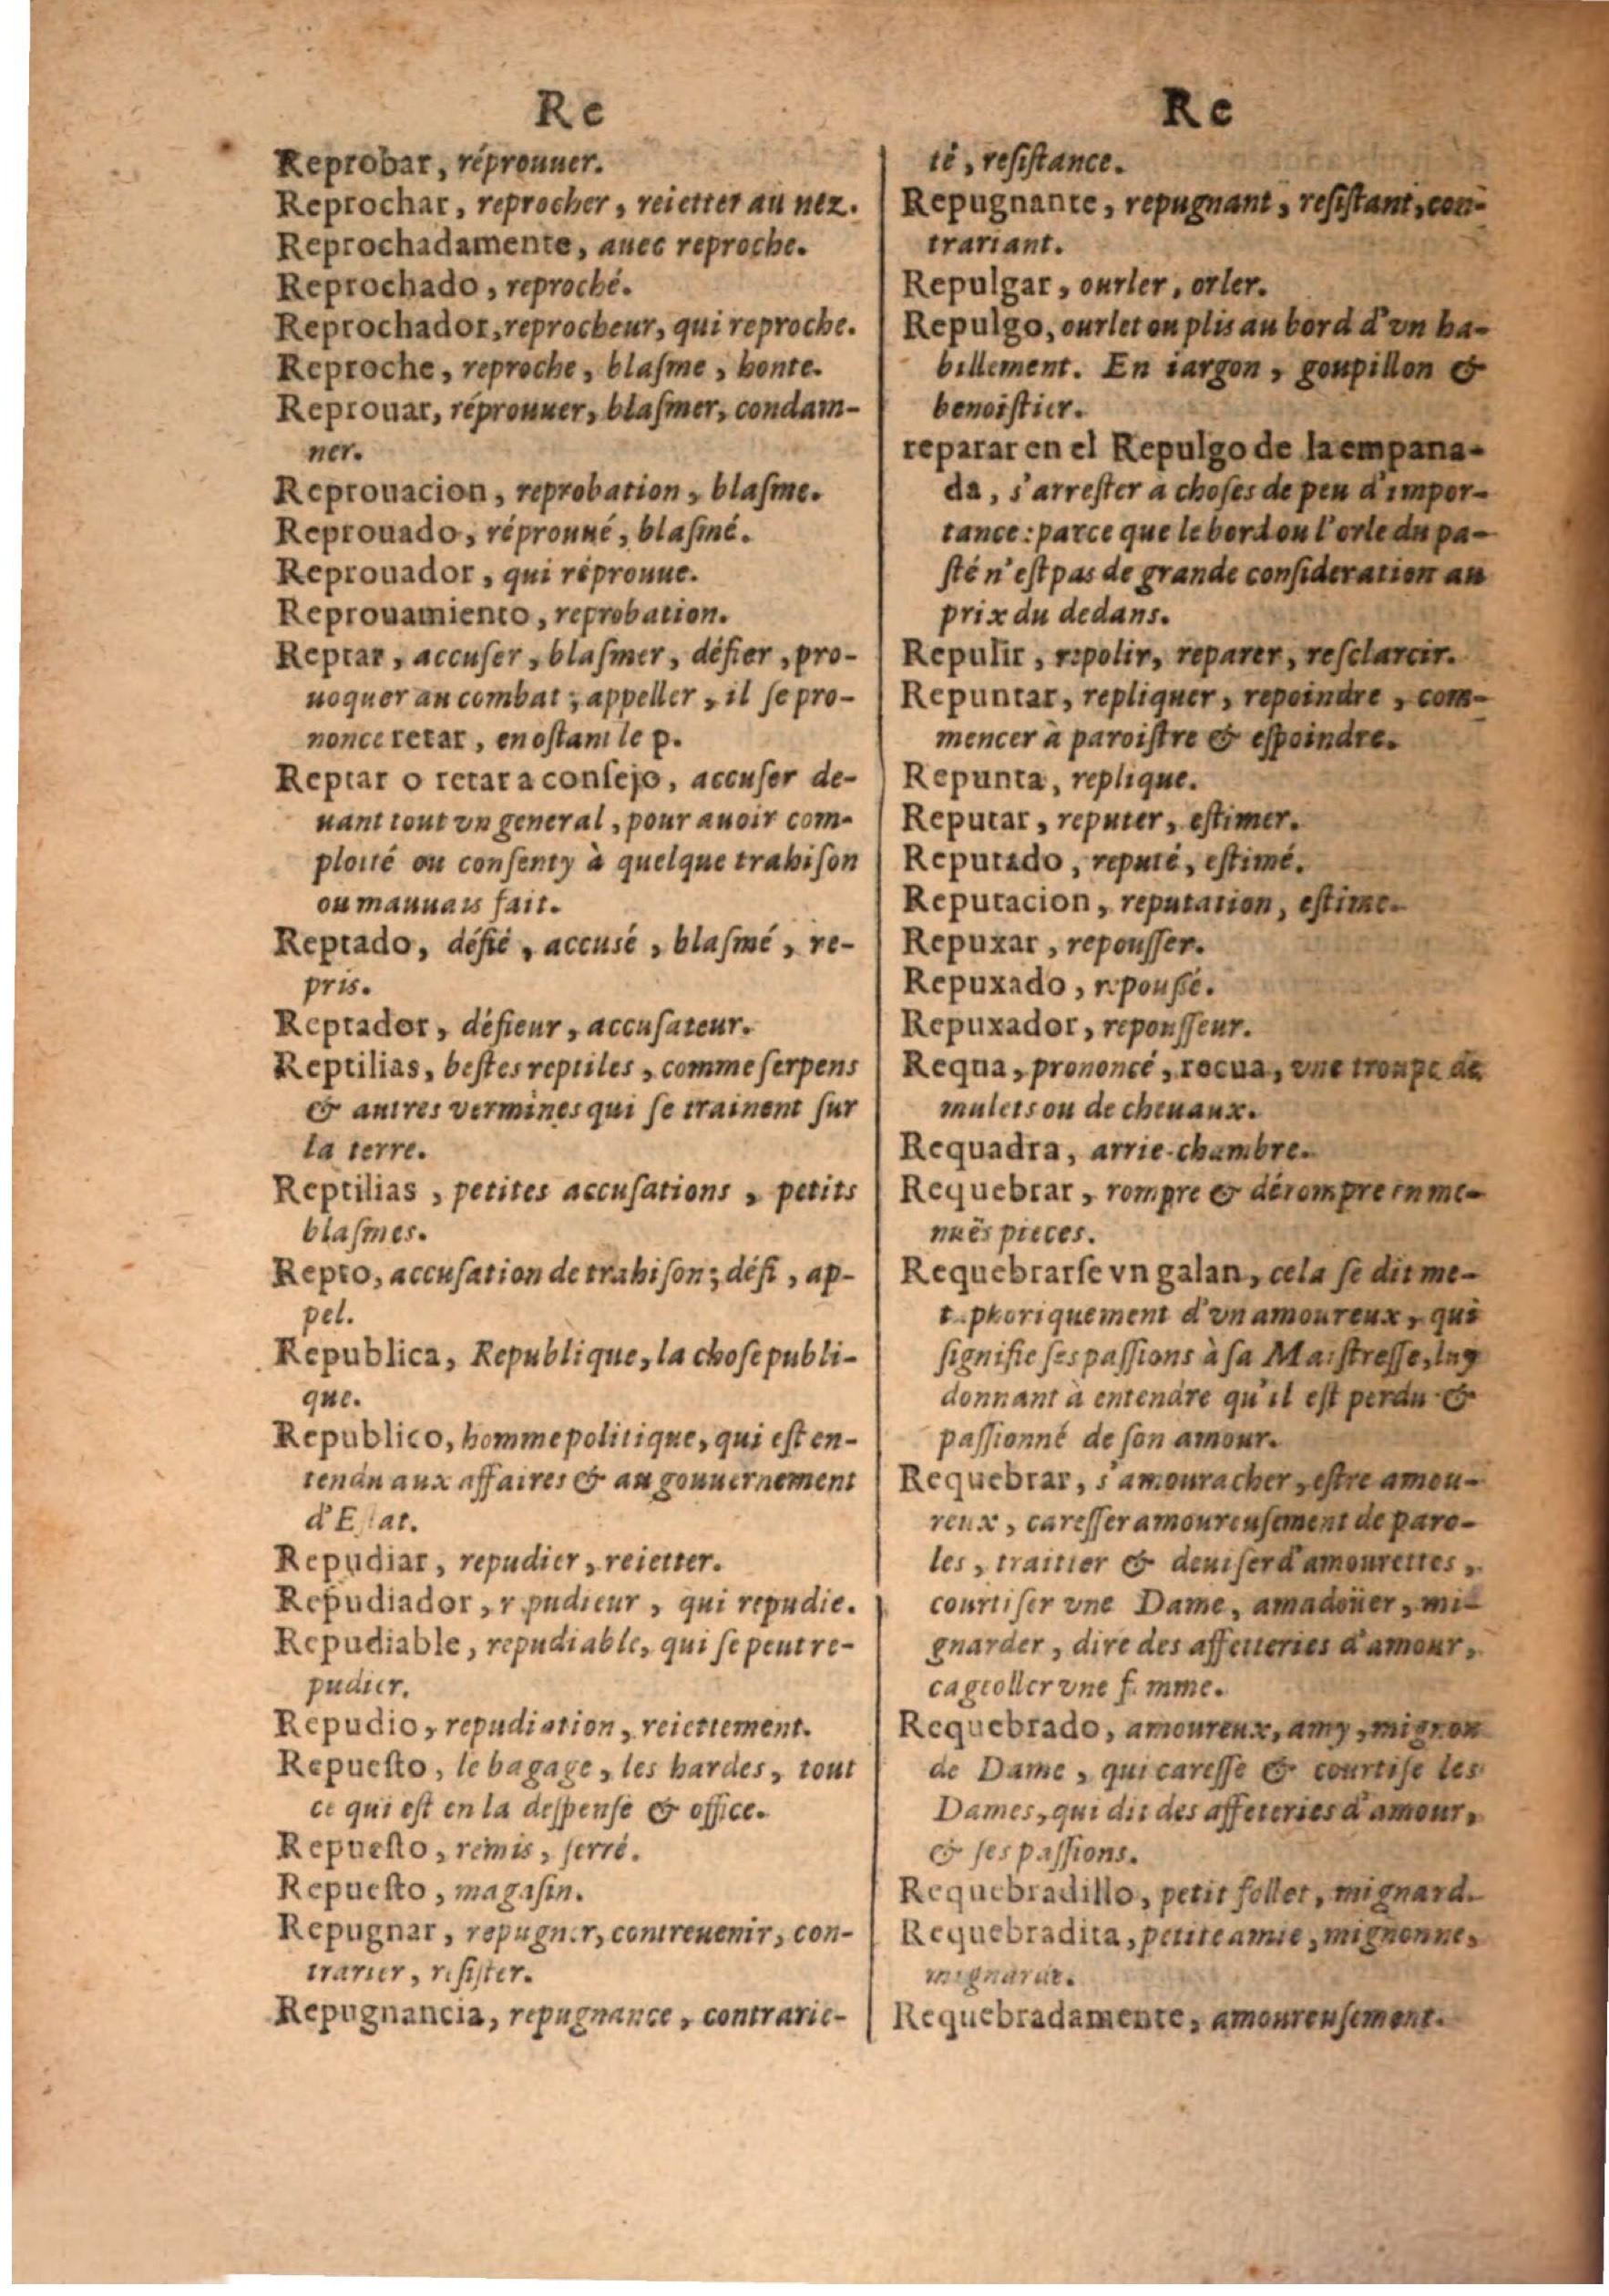 Re
Reprobar, réprouuer.
Reprochar, reprocher, reietter au nez.
Reprochadamente, auec reproche.
Reprochado, reproché.
Reprochador, reprocheur, qui reproche.
Reproche, reproche, blaſme, honte.
Reprouar, réprouuer, blaſmer, condam-
ner.
Reprouacion, reprobation, blaſme.
Reprouado, réprouué, blaſmé.
Reprouador, qui réprouue.
Reprouamiento, reprobation.
Reptar, accuſer, blaſmer, défier, pro-
uoquer au combat; appeller, il ſe pro-
nonce retar, en oſtant le p.
Reptar o retar a conſejo, accuſer de-
uant tout vn general, pour auoir com-
plotté ou conſenty à quelque trahiſon
ou mauuais fait.
Reptado, défié, accusé, blaſmé, re-
pris.
Reptador, défieur, accuſateur.
Reptilias, beſtes reptiles, comme ſerpens
& autres vermines qui ſe trainent ſur
la terre.
Reptilias, petites accuſations, petits
blaſmes.
Repto, accuſation de trahiſon; défi, ap-
pel.
Republica, Republique, la choſe publi-
que.
Republico, homme politique, qui eſt en-
tendu aux affaires & au gouuernement
d'Eſtat.
Repudiar, repudier, reietter.
Repudiador, repudieur, qui repudie.
Repudiable, repudiable, qui ſe peut re-
pudier.
Repudio, repudiation, reiettement.
Repueſto, le bagage, les hardes, tout
ce qui eſt en la deſpenſe & office.
Repueſto, remis, ſerré.
Repueſto, magaſin.
Repugnar, repugner, contreuenir, con-
trarier, reſiſter.
Repugnancia, repugnance, contrarie-
Re
té, reſiſtance.
Repugnante, repugnant, reſiſtant, con-
trariant.
Repulgar, ourler, orler.
Repulgo, ourlet ou plis au bord d'vn ha-
billement. En iargon, goupillon &
benoiſtier.
reparar en el Repulgo de la empana-
da, s'arreſter a choſes de peu d'impor-
tance: parce que le bord ou l'orle du pa-
ſté n'eſt pas de grande conſideration au
prix du dedans.
Repulir, repolir, reparer, reſclarcir.
Repuntar, repliquer, repoindre, com-
mencer à paroiſtre & eſpoindre.
Repunta, replique.
Reputar, reputer, eſtimer.
Reputado, reputé, eſtimé.
Reputacion, reputation, eſtime.
Repuxar, repouſſer.
Repuxado, repouſſé.
Repuxador, repouſſeur.
Requa, prononcé, recua, vne troupe de
mulets ou de cheuaux.
Requadra, arrie-chambre.
Requebrar, rompre & dérompre en me-
nuës pieces.
Requebrarſe vn galan, cela ſe dit me-
taphoriquement d'vn amoureux, qui
ſignifie ſes paſſions à ſa Maiſtreſſe, luy
donnant à entendre qu'il eſt perdu &
paſſionné de ſon amour.
Requebrar, s'amouracher, eſtre amou-
reux, careſſer amoureuſement de paro-
les, traitter & deuiſer d'amourettes,
courtiſer vne Dame, amadoüer, mi-
gnarder, dire des affetteries d'amour,
cageoller vne femme.
Requebrado, amoureux, amy, mignon
de Dame, qui careſſe & courtiſe les
Dames, qui dit des affeteries d'amour,
& ſes paſſions.
Requebradillo, petit follet, mignard.
Requebradita, petite amie, mignonne,
mignarde.
Requebradamente, amoureuſement.